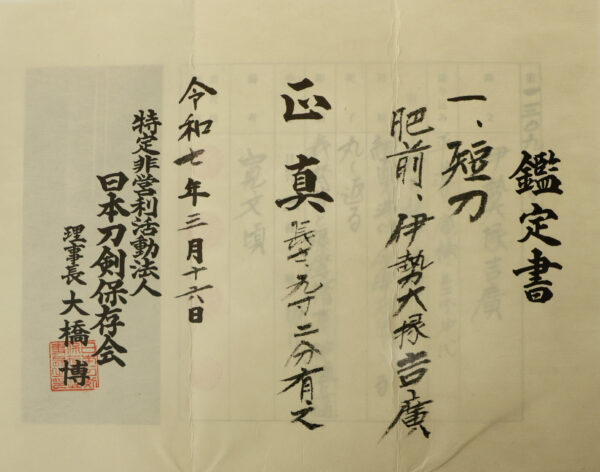 鑑定書
一、短刀
肥前、伊勢大掾吉廣
正真
長さ、九寸二分有之
令和七年三月十六日
特定非営利活動法人
日本刀剣保存会
理事長 大橋 博